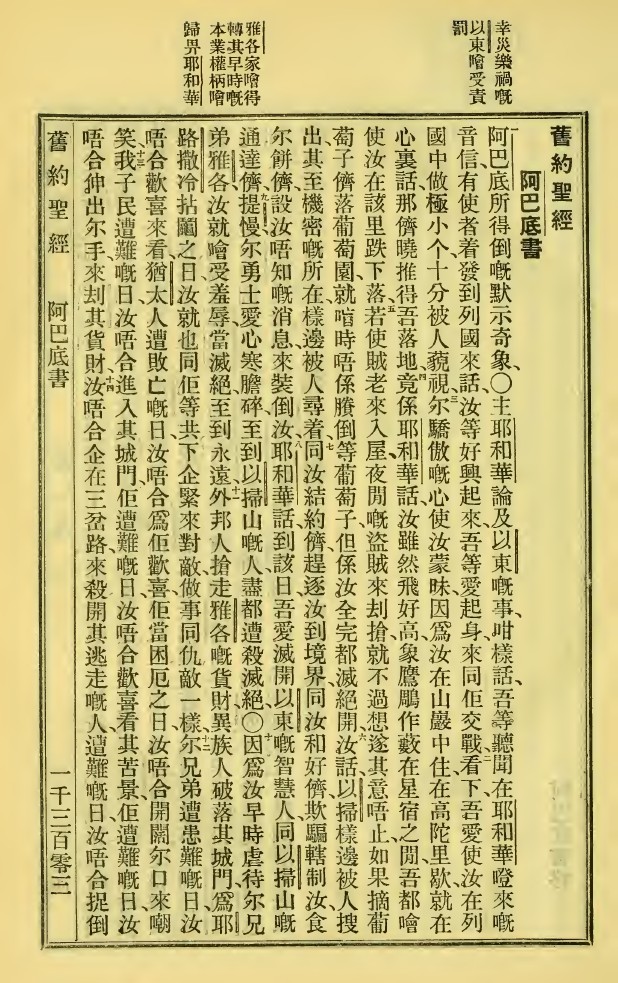 幸災樂禍嘅
以東噲受責
罰
雅各家噲得
轉其早時嘅
本業權柄噲
歸畀耶和華
舊約聖經
阿巴底書
阿巴底所得倒嘅默示奇象、〇主耶和華論及以東嘅事、咁樣話、吾等聽聞在耶和華嶝來嘅
音信、有使者着發到列國來話、汝等好興起來、吾等愛起身來同佢交戰、二看下、吾愛使汝在列
國中做極小个、十分被人藐視、三尔驕傲嘅心使汝蒙昧、因爲汝在山巖中住、在高陀里歇、就在
心裏話、那儕曉推得吾落地、四竟係耶和華話、汝雖然飛好高象鷹鵰、作藪在星宿之間、吾都噲
使汝在該里跌下落、五若使賊老來入屋、夜間嘅盜賊來刦搶、就不過想遂其意唔止、如果摘葡
萄子儕落葡萄園、就喑時唔係賸倒等葡萄子、但係汝全完都滅絕開汝話、六以掃樣邊被人搜
出、其至機密嘅所在樣邊被人尋着、七同汝結約儕趕逐汝到境界、同汝和好儕欺騙轄制汝、食
尔餅儕設汝唔知嘅消息來裝倒汝、八耶和華話、到該日吾愛滅開以東嘅智慧人、同以掃山嘅
通達儕、九提慢尔勇士愛心寒膽碎、至到以掃山嘅人盡都遭殺滅絕、〇十因爲汝早時虐待尔兄
弟雅各、汝就噲受羞辱、當滅絕至到永遠、十一外邦人搶走雅各嘅貨財、異族人破落其城門、爲耶
路撒冷拈鬮之日、汝就也同佢等共下企緊來對敵、做事同仇敵一樣、十二尔兄弟遭患難嘅日、汝
唔合歡喜來看、猶太人遭敗亡嘅日、汝唔合爲佢歡喜、佢當困厄之日、汝唔合開闊尔口來嘲
笑、十三我子民遭難嘅日、汝唔合進入其城門、佢遭難嘅日、汝唔合歡喜看其苦景、佢遭難嘅日、汝
唔合伸出尔手來刦其貨財、十四汝唔合企在三岔路來殺開其逃走嘅人、遭難嘅日、汝唔合捉倒
舊約聖經　阿巴底書　一千三百零三